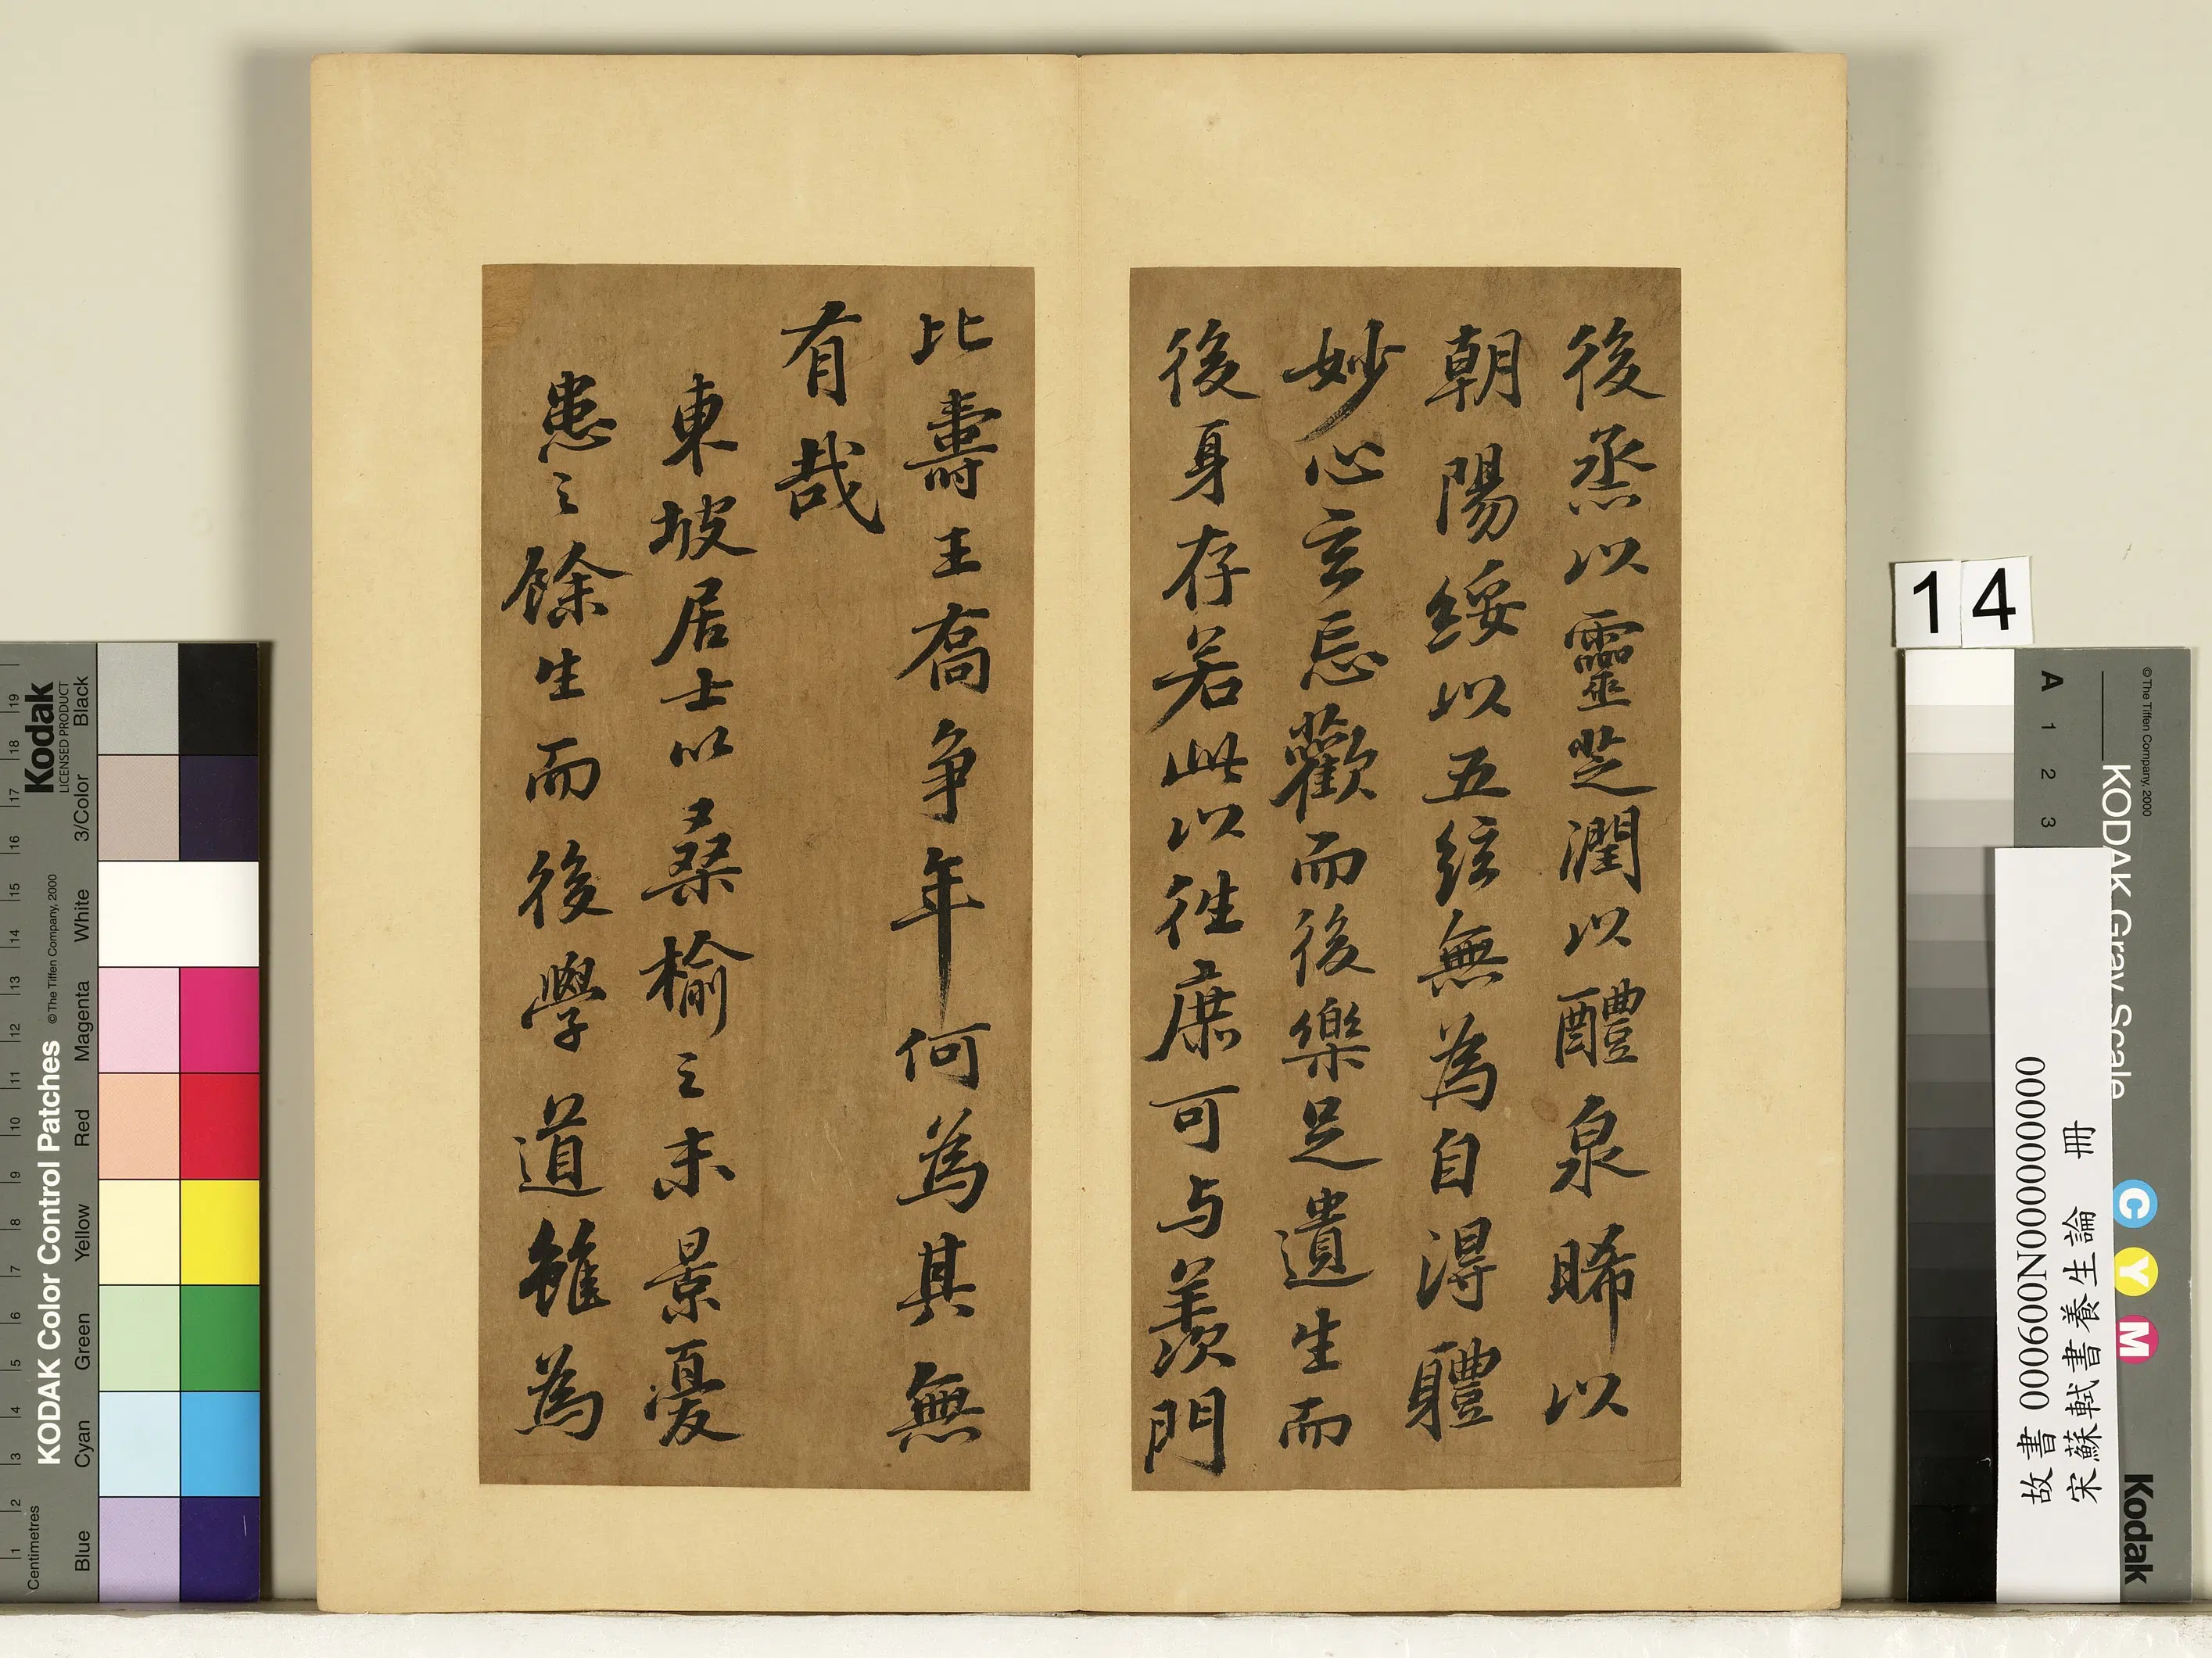 後烝以靈芝潤以醴泉晞以
朝陽綏以五絃無為自得體
妙心玄忘歡而後樂足遺生而
後身存若此以往庶可与羨門
比壽王喬争年何為其無
有哉
東坡居士以桑榆之末景憂
患之餘生而後學道雖為
14
故書 000600N000000000
宋蘇軾書養生論 冊
KODAK Color Control Patches
© The Tiffen Company, 2000
Kodak
LICENSED PRODUCT
Centimetres
1 2 3 4 5 6 7 8 9 10 11 12 13 14 15 16 17 18 19
Blue Cyan Green Yellow Red Magenta White 3/Color Black
© The Tiffen Company, 2000
KODAK Gray Scale
A 1 2 3
C Y M
Kodak